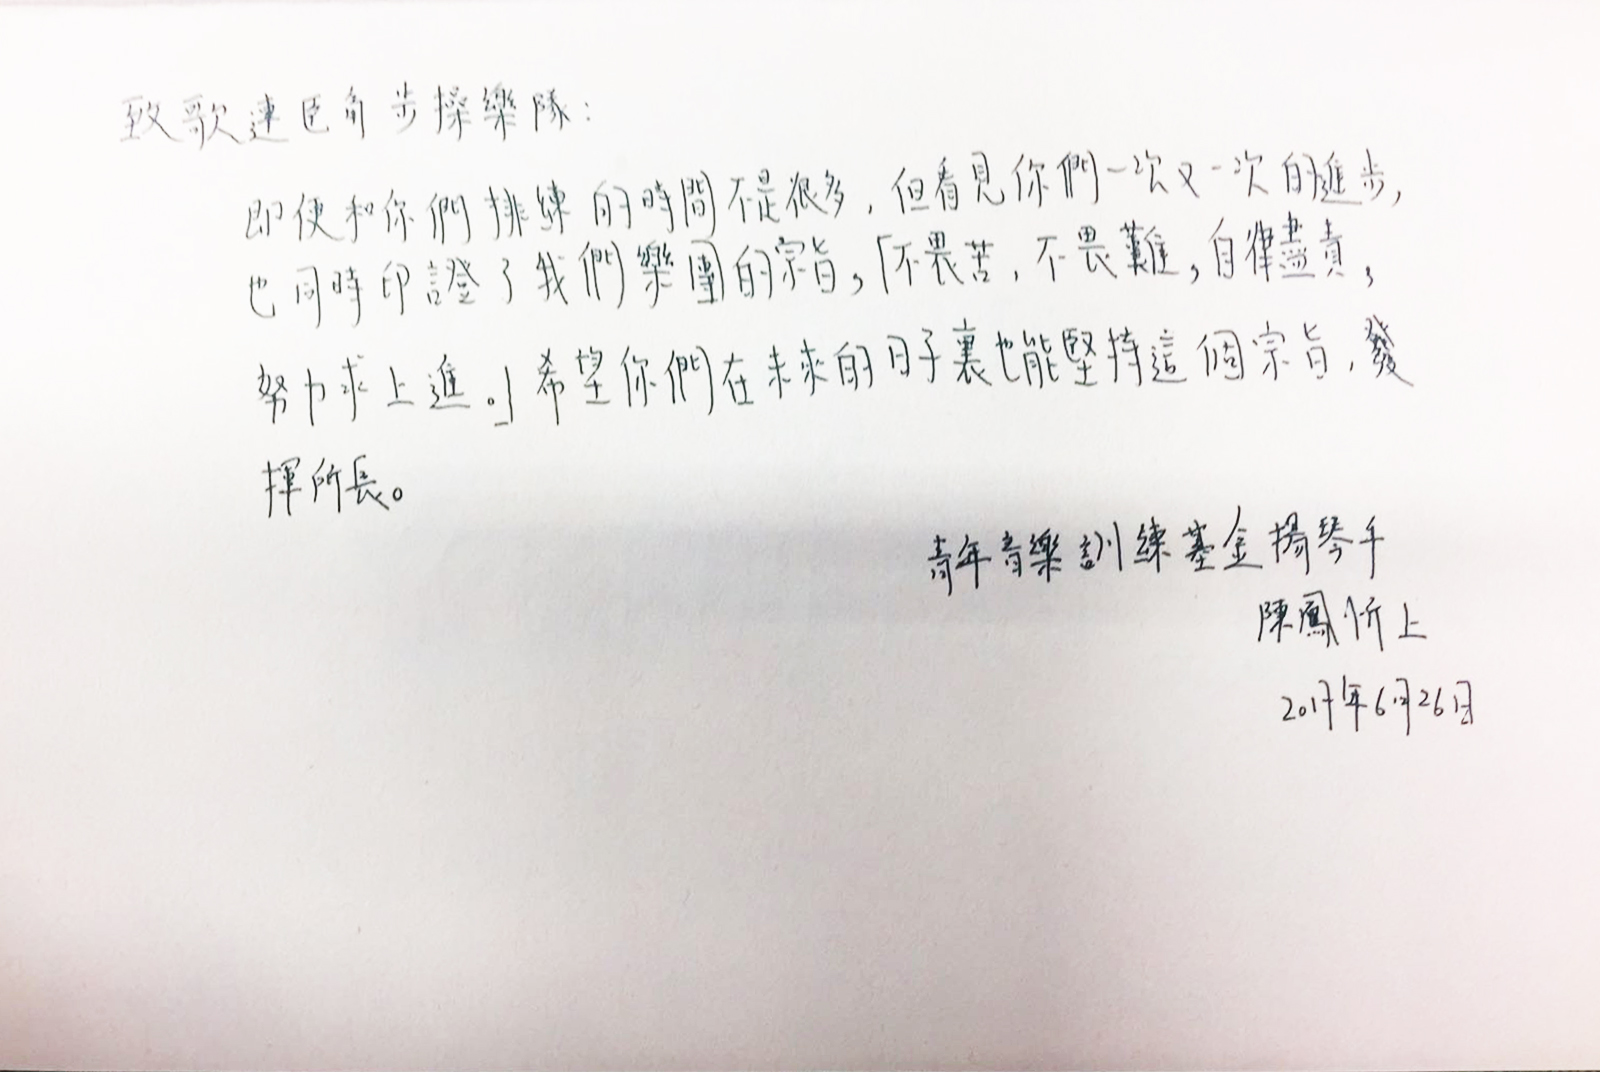 致歌連臣角步操樂隊：
即使和你們排練的時間不是很多，但看見你們一次又一次的進步，
也同時印證了我們樂團的宗旨，「不畏苦，不畏難，自律盡責，
努力求上進。」希望你們在未來的日子裏也能堅持這個宗旨，發
揮所長。
青年音樂訓練基金揚琴手
陳鳳忻上
2017年6月26日